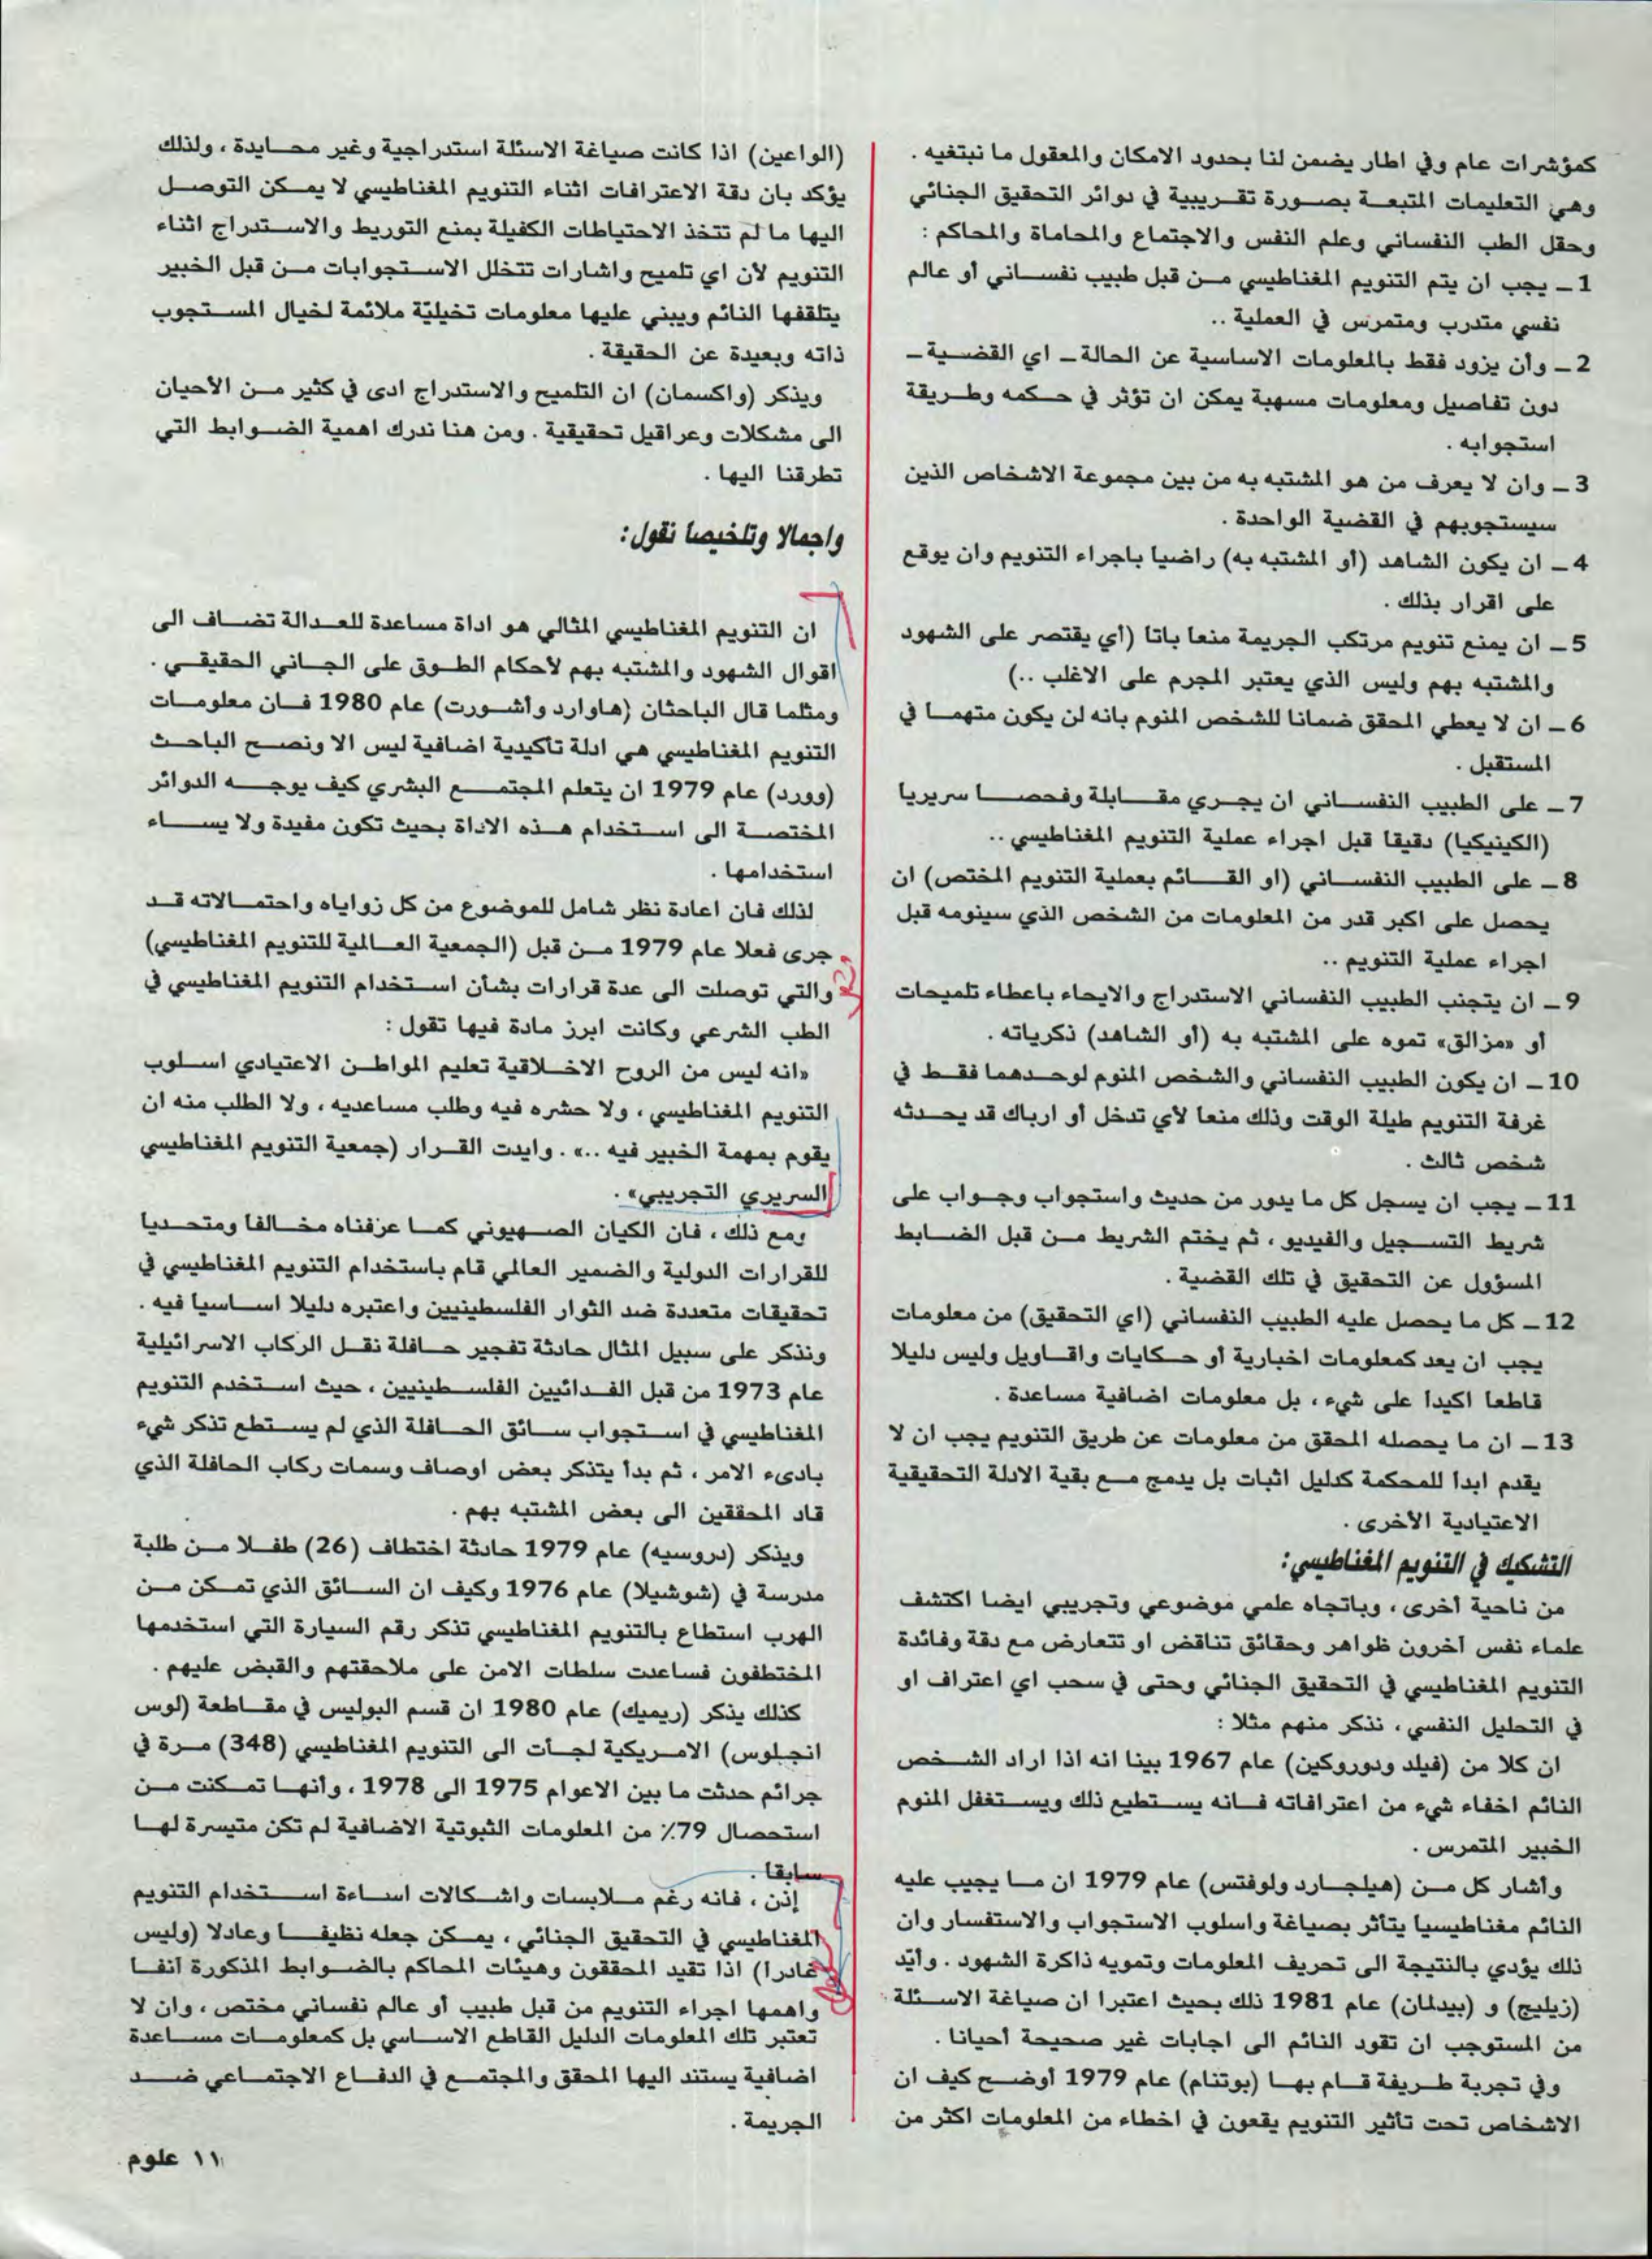 كمؤشرات عام وفي اطار يضمن لنا بحدود الامكان والمعقول ما نبتغيه .
وهي التعليمات المتبعة بصورة تقريبية في دوائر التحقيق الجنائي
وحقل الطب النفساني وعلم النفس والاجتماع والمحاماة والمحاكم :
1 ـ يجب ان يتم التنويم المغناطيسي من قبل طبيب نفساني أو عالم
نفسي متدرب ومتمرس في العملية ..
2 ـ وأن يزود فقط بالمعلومات الاساسية عن الحالة ـ اي القضية ـ
دون تفاصيل ومعلومات مسهبة يمكن ان تؤثر في حكمه وطريقة
استجوابه .
3 ـ وان لا يعرف من هو المشتبه به من بين مجموعة الاشخاص الذين
سيستجوبهم في القضية الواحدة .
4 ـ ان يكون الشاهد (أو المشتبه به) راضيا باجراء التنويم وان يوقع
على اقرار بذلك .
5 ـ ان يمنع تنويم مرتكب الجريمة منعا باتا (أي يقتصر على الشهود
والمشتبه بهم وليس الذي يعتبر المجرم على الاغلب ..)
6 ـ ان لا يعطي المحقق ضمانا للشخص المنوم بانه لن يكون متهما في
المستقبل .
7 ـ على الطبيب النفساني ان يجري مقابلة وفحصا سريريا
(الكينيكيا) دقيقا قبل اجراء عملية التنويم المغناطيسي ..
8 ـ على الطبيب النفساني (او القائم بعملية التنويم المختص) ان
يحصل على اكبر قدر من المعلومات من الشخص الذي سينومه قبل
اجراء عملية التنويم ..
9 ـ ان يتجنب الطبيب النفساني الاستدراج والايحاء باعطاء تلميحات
أو «مزالق» تموه على المشتبه به (أو الشاهد) ذكرياته .
10 ـ ان يكون الطبيب النفساني والشخص المنوم لوحدهما فقط في
غرفة التنويم طيلة الوقت وذلك منعا لأي تدخل أو ارباك قد يحدثه
شخص ثالث .
11 ـ يجب ان يسجل كل ما يدور من حديث واستجواب وجواب على
شريط التسجيل والفيديو ، ثم يختم الشريط من قبل الضابط
المسؤول عن التحقيق في تلك القضية .
12 ـ كل ما يحصل عليه الطبيب النفساني (اي التحقيق) من معلومات
يجب ان يعد كمعلومات اخبارية أو حكايات واقاويل وليس دليلا
قاطعا اكيدا على شيء ، بل معلومات اضافية مساعدة .
13 ـ ان ما يحصله المحقق من معلومات عن طريق التنويم يجب ان لا
يقدم ابدا للمحكمة كدليل اثبات بل يدمج مع بقية الادلة التحقيقية
الاعتيادية الأخرى .
التشكيك في التنويم المغناطيسي:
من ناحية أخرى ، وباتجاه علمي موضوعي وتجريبي ايضا اكتشف
علماء نفس آخرون ظواهر وحقائق تناقض او تتعارض مع دقة وفائدة
التنويم المغناطيسي في التحقيق الجنائي وحتى في سحب اي اعتراف او
في التحليل النفسي ، نذكر منهم مثلا :
ان كلا من (فيلد ودوروكين) عام 1967 بينا انه اذا اراد الشخص
النائم اخفاء شيء من اعترافاته فانه يستطيع ذلك ويستغفل المنوم
الخبير المتمرس .
وأشار كل من (هيلجارد ولوفتس) عام 1979 ان ما يجيب عليه
النائم مغناطيسيا يتأثر بصياغة واسلوب الاستجواب والاستفسار وان
ذلك يؤدي بالنتيجة الى تحريف المعلومات وتمويه ذاكرة الشهود . وأيّد
(زيليج) و (بيدلمان) عام 1981 ذلك بحيث اعتبرا ان صياغة الاسئلة
من المستوجب ان تقود النائم الى اجابات غير صحيحة أحيانا .
وفي تجربة طريفة قام بها (بوتنام) عام 1979 أوضح كيف ان
الاشخاص تحت تأثير التنويم يقعون في اخطاء من المعلومات اكثر من
(الواعين) اذا كانت صياغة الاسئلة استدراجية وغير محايدة ، ولذلك
يؤكد بان دقة الاعترافات اثناء التنويم المغناطيسي لا يمكن التوصل
اليها ما لم تتخذ الاحتياطات الكفيلة بمنع التوريط والاستدراج اثناء
التنويم لأن اي تلميح واشارات تتخلل الاستجوابات من قبل الخبير
يتلقفها النائم ويبني عليها معلومات تخيليّة ملائمة لخيال المستجوب
ذاته وبعيدة عن الحقيقة .
ويذكر (واكسمان) ان التلميح والاستدراج ادى في كثير من الأحيان
الى مشكلات وعراقيل تحقيقية . ومن هنا ندرك اهمية الضوابط التي
تطرقنا اليها .
واجمالا وتلخيصا نقول:
ان التنويم المغناطيسي المثالي هو اداة مساعدة للعدالة تضاف الى
اقوال الشهود والمشتبه بهم لأحكام الطوق على الجاني الحقيقي .
ومثلما قال الباحثان (هاوارد وأشورت) عام 1980 فان معلومات
التنويم المغناطيسي هي ادلة تأكيدية اضافية ليس الا ونصح الباحث
(وورد) عام 1979 ان يتعلم المجتمع البشري كيف يوجه الدوائر
المختصة الى استخدام هذه الاداة بحيث تكون مفيدة ولا يساء
استخدامها .
لذلك فان اعادة نظر شامل للموضوع من كل زواياه واحتمالاته قد
جرى فعلا عام 1979 من قبل (الجمعية العالمية للتنويم المغناطيسي)
والتي توصلت الى عدة قرارات بشأن استخدام التنويم المغناطيسي في
الطب الشرعي وكانت ابرز مادة فيها تقول :
«انه ليس من الروح الاخلاقية تعليم المواطن الاعتيادي اسلوب
التنويم المغناطيسي ، ولا حشره فيه وطلب مساعديه ، ولا الطلب منه ان
يقوم بمهمة الخبير فيه ..» . وايدت القرار (جمعية التنويم المغناطيسي
السريري التجريبي» .
ومع ذلك ، فان الكيان الصهيوني كما عرفناه مخالفا ومتحديا
للقرارات الدولية والضمير العالمي قام باستخدام التنويم المغناطيسي في
تحقيقات متعددة ضد الثوار الفلسطينيين واعتبره دليلا اساسيا فيه .
ونذكر على سبيل المثال حادثة تفجير حافلة نقل الركاب الاسرائيلية
عام 1973 من قبل الفدائيين الفلسطينيين ، حيث استخدم التنويم
المغناطيسي في استجواب سائق الحافلة الذي لم يستطع تذكر شيء
بادىء الامر ، ثم بدأ يتذكر بعض اوصاف وسمات ركاب الحافلة الذي
قاد المحققين الى بعض المشتبه بهم .
ويذكر (دروسيه) عام 1979 حادثة اختطاف (26) طفلا من طلبة
مدرسة في (شوشيلا) عام 1976 وكيف ان السائق الذي تمكن من
الهرب استطاع بالتنويم المغناطيسي تذكر رقم السيارة التي استخدمها
المختطفون فساعدت سلطات الامن على ملاحقتهم والقبض عليهم .
كذلك يذكر (ريميك) عام 1980 ان قسم البوليس في مقاطعة (لوس
انجلوس) الامريكية لجأت الى التنويم المغناطيسي (348) مرة في
جرائم حدثت ما بين الاعوام 1975 الى 1978 ، وأنها تمكنت من
استحصال 79٪ من المعلومات الثبوتية الاضافية لم تكن متيسرة لها
سابقا .
إذن ، فانه رغم ملابسات واشكالات اساءة استخدام التنويم
المغناطيسي في التحقيق الجنائي ، يمكن جعله نظيفا وعادلا (وليس
غادرا) اذا تقيد المحققون وهيئات المحاكم بالضوابط المذكورة آنفا
واهمها اجراء التنويم من قبل طبيب أو عالم نفساني مختص ، وان لا
تعتبر تلك المعلومات الدليل القاطع الاساسي بل كمعلومات مساعدة
اضافية يستند اليها المحقق والمجتمع في الدفاع الاجتماعي ضد
الجريمة .
١١ علوم